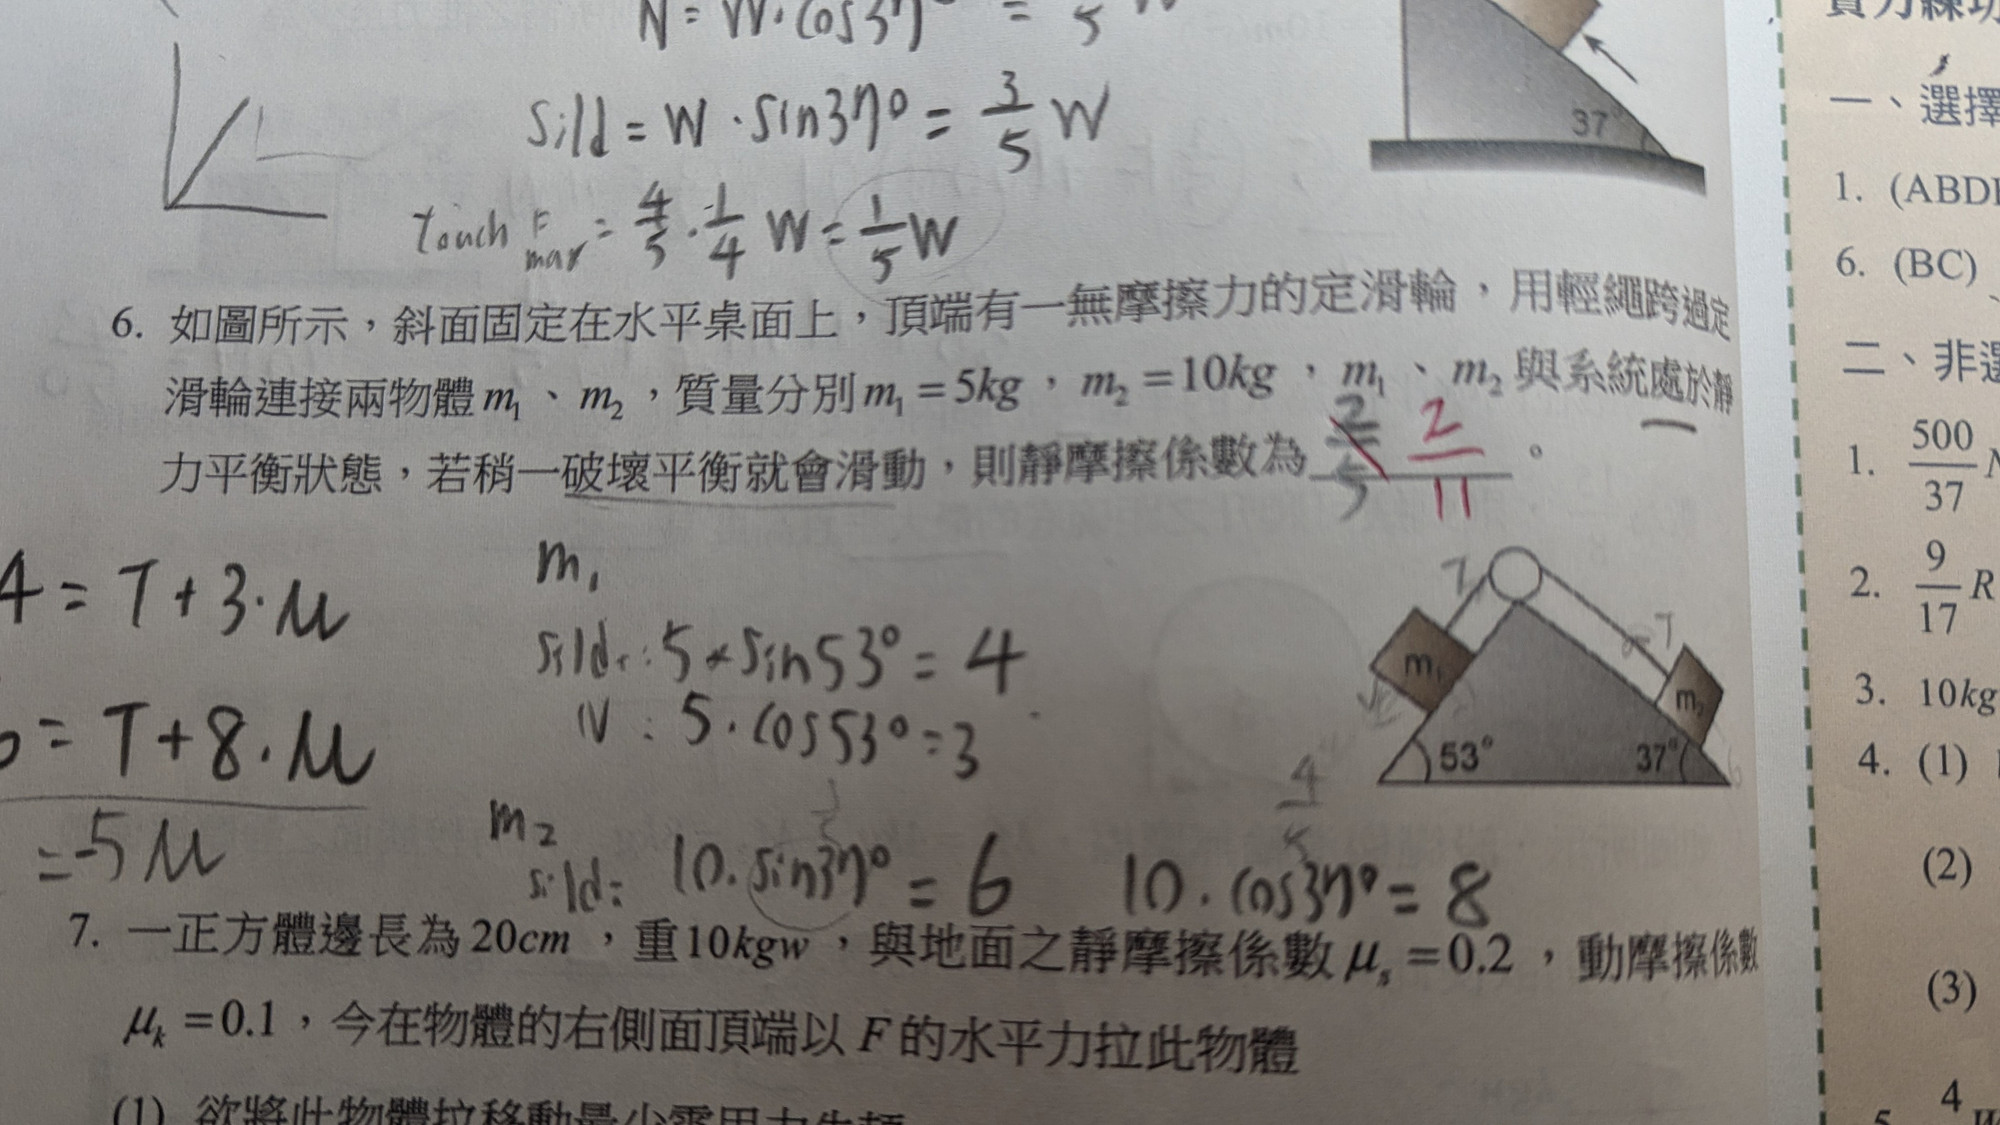 N = W · cos37° = 5 W
37°
Sild = W · sin37° = 3/5 W
touch F max = 4/5 · 1/4 W = 1/5 W
6. 如圖所示，斜面固定在水平桌面上，頂端有一無摩擦力的定滑輪，用輕繩跨過定
滑輪連接兩物體 m₁、m₂，質量分別 m₁ = 5kg，m₂ = 10kg，m₁、m₂ 與系統處於靜
力平衡狀態，若稍一破壞平衡就會滑動，則靜摩擦係數為 2/5 2/11 。
4 = T + 3 · μ
= T + 8 · μ
= -5μ
m₁
sild : 5 × sin53° = 4
N : 5 · cos53° = 3
m₂
sild = 10 · sin37° = 6
10 · cos37° = 8
4/5
T
T
m₁
m₂
53°
37°
7. 一正方體邊長為 20cm，重 10kgw，與地面之靜摩擦係數 μₛ = 0.2，動摩擦係數
μₖ = 0.1，今在物體的右側面頂端以 F 的水平力拉此物體
(1) 欲將此物體拉移動最少需用力
一、選擇
1. (ABD
6. (BC)
二、非選
1. 500/37 N
2. 9/17 R
3. 10kg
4. (1)
(2)
(3)
5. 4 W